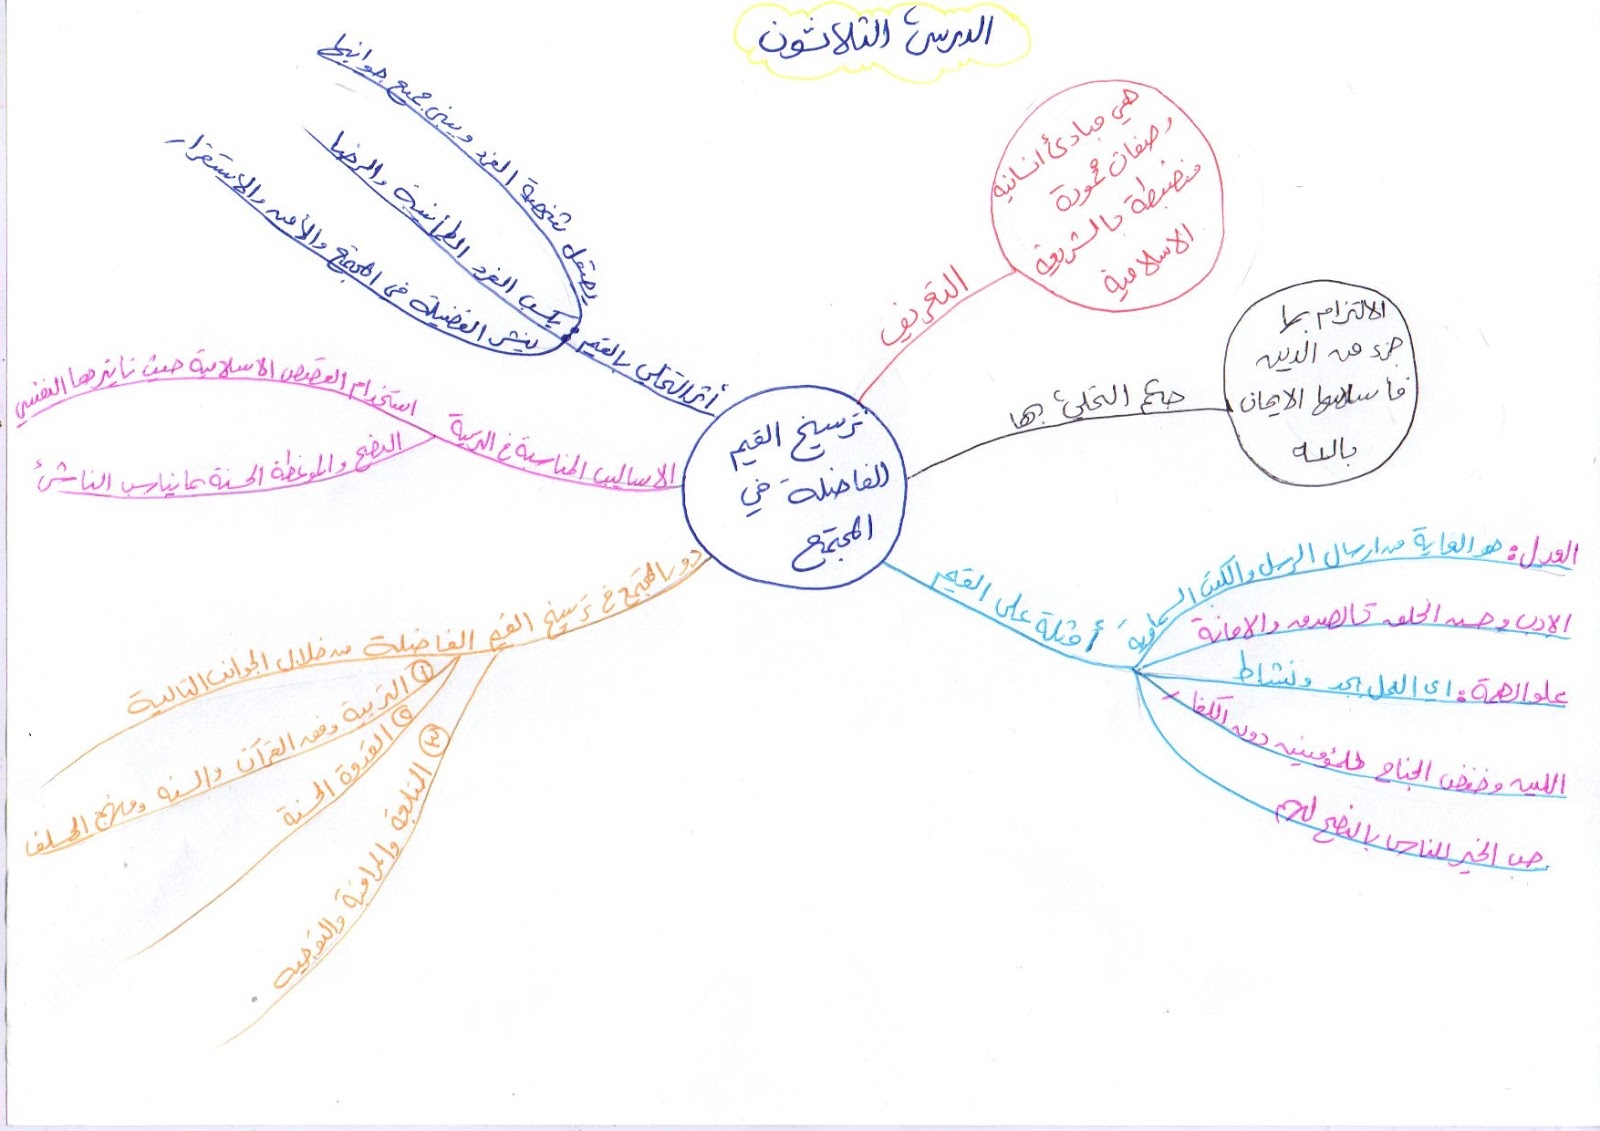 الدرس الثلاثون
ترسيخ القيم
الفاضلة في
المجتمع
التعريف
هي مبادئ انسانية
وصفات محمودة
منضبطة بالشريعة
الاسلامية
حكم التحلي بها
الالتزام بها
جزء من الدين
فأساسها الايمان
بالله
أمثلة على القيم
العدل: هو الغاية من ارسال الرسل والكتب السماوية
الادب وحسن الخلق كالصدق والامانة
علو الهمة: اي العمل بجد ونشاط
اللين وخفض الجناح للمؤمنين دون الكفار
حب الخير للناس بالنصح لهم
دور المجتمع في ترسيخ القيم الفاضلة من خلال الجوانب التالية
١ التربية وفق القرآن والسنه ومنهج السلف
٢ القدوة الحسنة
٣ المتابعة والمراقبة والتوجيه
الاساليب المناسبة في التربية
استخدام القصص الاسلامية حيث تأثيرها النفسي
النصح والموعظة الحسنة بما يناسب الناشئ
أثر التحلي بالقيم
يصقل شخصية الفرد ويبني جميع جوانبها
يكسب الفرد الطمأنينة والرضا
ينشر الفضيلة في المجتمع والأمن والاستقرار